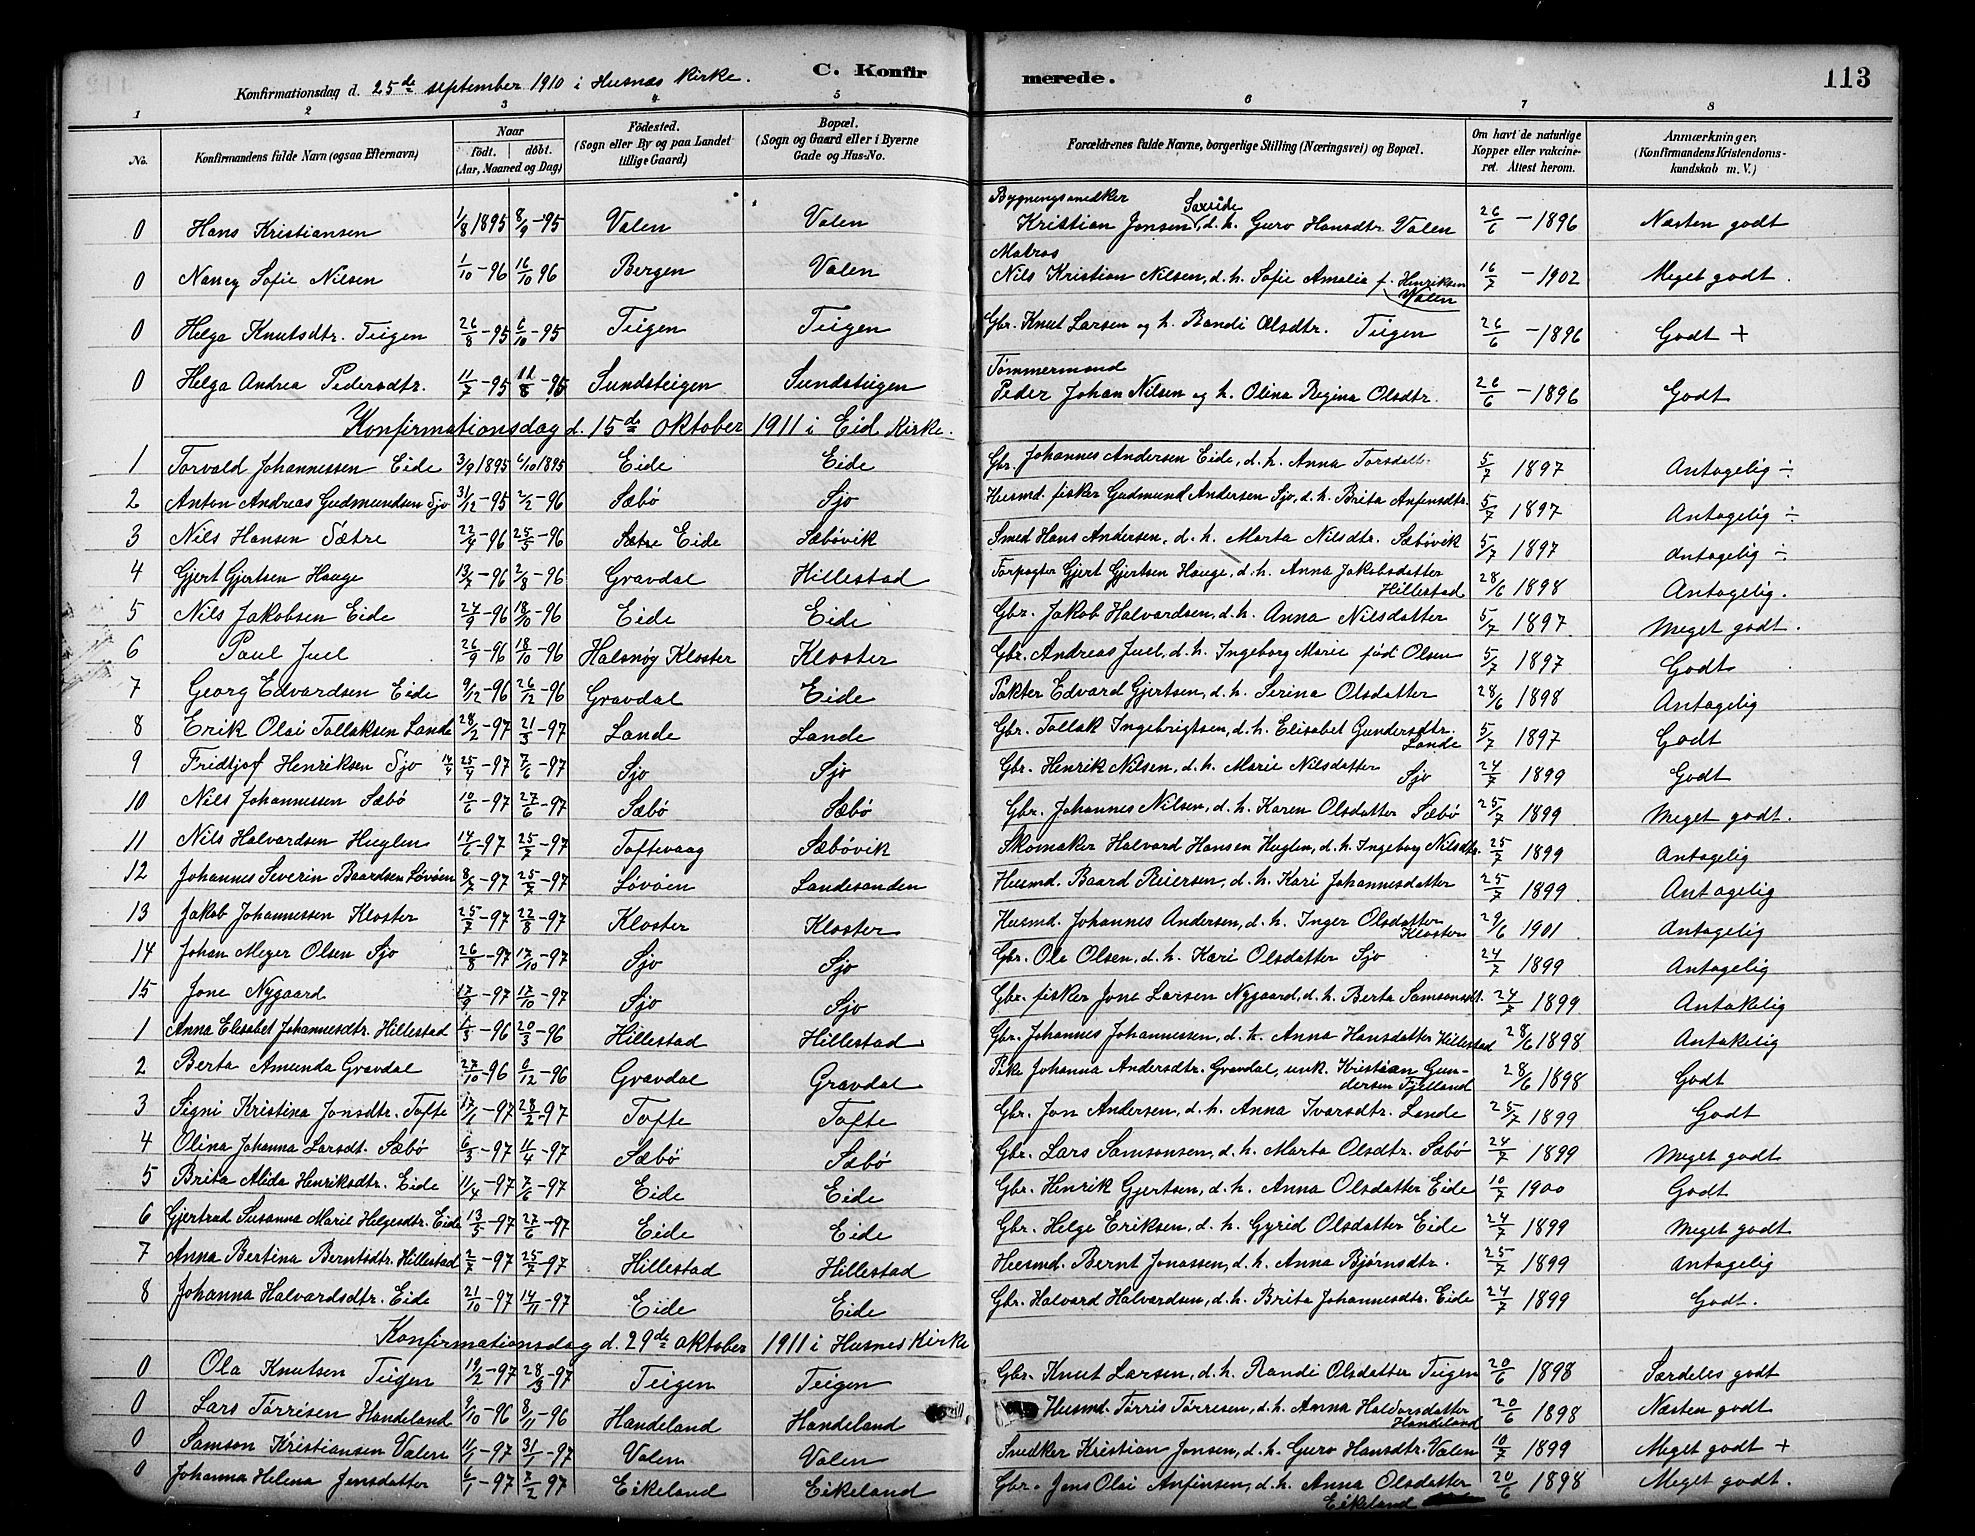 C. Konfirmerede. 113
Konfirmationsdag d. 25de september 1910 i Husnæs Kirke.
1 2 3 4 5 6 7 8
No. Konfirmandens fulde Navn (ogsaa Efternavn) Naar født. døbt. (Aar, Maaned og Dag) Fødested. (Sogn eller By og paa Landet tillige Gaard) Bopæl. (Sogn og Gaard eller i Byerne Gade og Hus-No. Forældrenes fulde Navne, borgerlige Stilling (Næringsvei) og Bopæl. Om havt de naturlige Kopper eller vakcineret. Attest herom. Anmærkninger, (Konfirmandens Kristendomskundskab m. V.)
0 Hans Kristiansen 1/8 1895 8/9-95 Valen Valen Bygningssnedker Kristian Jonsen Saxeide, d. h. Guro Hansdtr. Valen 26/6-1896 Næsten godt
0 Nancy Sofie Nilsen 1/10-96 16/10 96 Bergen Valen Matros Nils Kristian Nilsen, d. h. Sofie Amalia f. Henriksen Valen 16/7-1902 Meget godt.
0 Helga Knutsdtr. Teigen 26/8-95 6/10-95 Teigen Teigen Gbr. Knut Larsen og h. Randi Olsdtr. Teigen 26/6-1896 Godt +
0 Helga Andrea Pedersdtr. 11/7-95 11/8-95 Sundsteigen Sundsteigen Tømmermand Peder Johan Nilsen og h. Olina Regina Olsdtr. 26/6-1896 Godt
Konfirmationsdag d. 15de oktober 1911 i Eid Kirke.
1 Torvald Johannessen Eide 3/9 1895 6/10 1895 Eide Eide Gbr. Johannes Andersen Eide, d. h. Anna Torsdatter 5/7 1897 Antagelig ÷
2 Anton Andreas Gudmundsen Sjo 31/12-95 2/2-96 Sæbö Sjo Husmd. fisker Gudmund Andersen Sjo, d. h. Brita Anfinsdtr. 5/7 1897 Antagelig ÷
3 Nils Hansen Sætre 22/4-96 25/5-96 Sætre Eide Sæbövik Smed Hans Andersen, d. h. Marta Nilsdtr. Sæbövik 5/7 1897 Antagelig ÷
4 Gjert Gjertsen Hauge 13/7-96 2/8-96 Gravdal Hillestad Forpagter Gjert Gjertsen Hauge, d. h. Anna Jakobsdatter Hillestad 28/6 1898 Antagelig.
5 Nils Jakobsen Eide 24/9-96 18/10-96 Eide Eide Gbr. Jakob Halvardsen, d. h. Anna Nilsdatter 5/7 1897 Meget godt.
6 Paul Juel 26/9-96 18/10-96 Halsnöy Kloster Kloster Gbr. Andreas Juel, d. h. Ingeborg Marie föd Olsen 5/7 1897 Godt
7 Georg Edvardsen Eide 9/12-96 26/12-96 Gravdal Eide Pakter Edvard Gjertsen, d. h. Serina Olsdatter 28/6 1898 Antagelig
8 Erik Olai Tollaksen Lande 28/2-97 21/3-97 Lande Lande Gbr. Tollak Ingebrigtsen, d. h. Elisabet Gundersdtr. Lande 5/7 1897 Godt
9 Fridtjof Henriksen Sjo 25/4-97 7/6-97 Sjo Sjo Gbr. Henrik Nilsen, d. h. Marie Nilsdatter Sjo 24/7 1899 Godt
10 Nils Johannessen Sæbö 10/6-97 27/6-97 Sæbö Sæbö Gbr. Johannes Nilsen, d. h. Karen Olsdatter Sæbö 25/7 1899 Meget godt.
11 Nils Halvardsen Huglen 14/6-97 25/7-97 Toftevaag Sæbövik Skomaker Halvard Hansen Huglen, d. h. Ingeborg Nilsdtr. 25/7 1899 Antagelig
12 Johannes Severin Baardsen Lövöen 8/7-97 25/7-97 Lövöen Landesanden Husmd. Baard Reiersen, d. h. Kari Johannesdatter 25/7 1899 Antagelig
13 Jakob Johannessen Kloster 25/7-97 22/8-97 Kloster Kloster Husmd. Johannes Andersen, d. h. Inger Olsdatter Kloster 29/6 1901 Antagelig
14 Johan Meyer Olsen Sjo 26/8-97 17/10-97 Sjo Sjo Gbr. Ole Olsen, d. h. Kari Olsdatter Sjo 24/7 1899 Antagelig
15 Jone Nygaard 17/9-97 17/10-97 Sjo Sjo Gbr. fisker Jone Larsen Nygaard, d. h. Berta Samsonsdt. 24/7 1899 Antakelig
1 Anna Elisabet Johannesdtr. Hillestad 6/3-96 20/3-96 Hillestad Hillestad Gbr. Johannes Johannessen, d. h. Anna Hansdatter Hillestad 28/6 1898 Antakelig
2 Berta Amunda Gravdal 27/10-96 6/12-96 Gravdal Gravdal Pike Johanna Andersdtr. Gravdal, unk. Kristian Gundersen Fjelland 28/6 1898 Godt
3 Signi Kristina Jonsdtr. Tofte 17/1-97 28/2-97 Tofte Tofte Gbr. Jon Andersen, d. h. Anna Ivarsdtr. Lande 25/7 1899 Godt
4 Olina Johanna Larsdt. Sæbö 6/3-97 11/4-97 Sæbö Sæbö Gbr. Lars Samsonsen, d. h. Marta Olsdtr. Sæbö 24/7 1899 Meget godt
5 Brita Alida Henriksdtr. Eide 11/4-97 7/6-97 Eide Eide Gbr. Henrik Gjertsen, d. h. Anna Olsdatter Eide 10/7 1900 Godt
6 Gjertrud Susanna Marie Helgesdtr. Eide 13/5-97 27/6-97 Eide Eide Gbr. Helge Eriksen, d. h. Gyrid Olsdatter Eide 24/7 1899 Meget godt
7 Anna Bertina Berntsdtr. Hillestad 2/7-97 25/7-97 Hillestad Hillestad Husmd. Bernt Jonassen, d. h. Anna Bjørnsdtr. 25/7 1899 Antagelig
8 Johanna Halvardsdtr. Eide 21/10-97 14/11-97 Eide Eide Gbr. Halvard Halvardsen, d. h. Brita Johannesdtr. Eide 24/7 1899 Godt.
Konfirmationsdag d. 29de oktober 1911 i Husnes Kirke
0 Ola Knutsen Teigen 19/2-97 28/3-97 Teigen Teigen Gbr. Knut Larsen, d. h. Randi Olsdatter Teigen 20/6 1898 Særdeles godt
0 Lars Tørrisen Handeland 9/10-96 8/11-96 Handeland Handeland Husmd. Tørris Tørresen, d. h. Anna Haldorsdatter Handeland 20/6 1898 Næsten godt
0 Samson Kristiansen Valen 11/1-97 31/1-97 Valen Valen Snedker Kristian Jonsen, d. h. Guro Hansdtr. Valen 10/7 1899 Meget godt +
0 Johanna Helena Jensdatter 6/1-97 7/2-97 Eikeland Eikeland Gbr. Jens Olai Anfinsen, d. h. Anna Olsdatter Eikeland 20/6 1898 Meget godt.